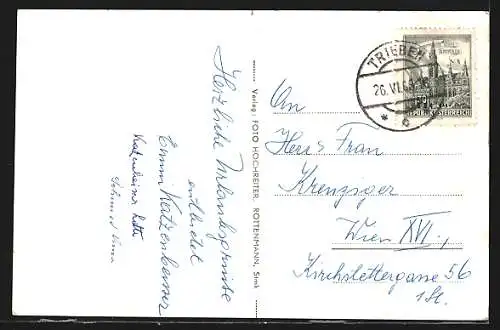 Herzliche Urlaubsgrüsse
entbietet
Emmi Katzenbeisser
Schmid
Verlag: FOTO HOCHREITER, ROTTENMANN, Stmk
TRIEBEN
26.VI.
* b
REPUBLIK ÖSTERREICH
An
Herr Frau
Krenziger
Wien XVI.,
Kirchstetterngasse 56
1 St.